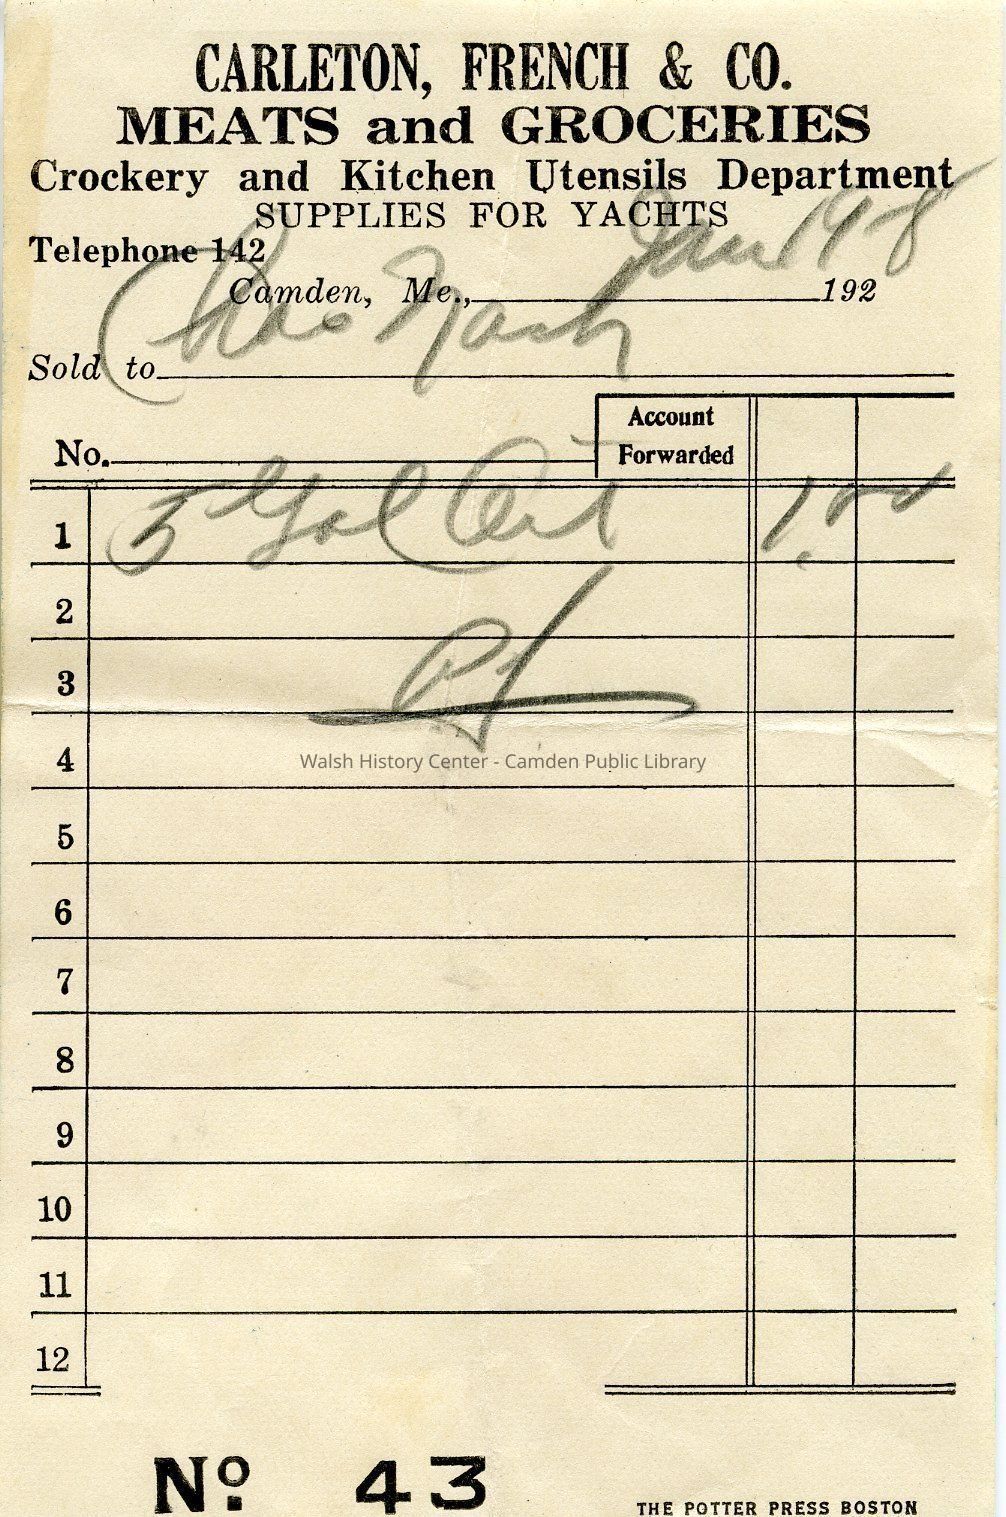 CARLETON, FRENCH & CO.
MEATS and GROCERIES
Crockery and Kitchen Utensils Department
SUPPLIES FOR YACHTS
Telephone 142
Jan 19-8
Camden, Me., 192
Sold to Chas Nash
Account
No. Forwarded
1 5 Gal 1.00
2
3 Pd
4
Walsh History Center - Camden Public Library
5
6
7
8
9
10
11
12
No. 43
THE POTTER PRESS BOSTON